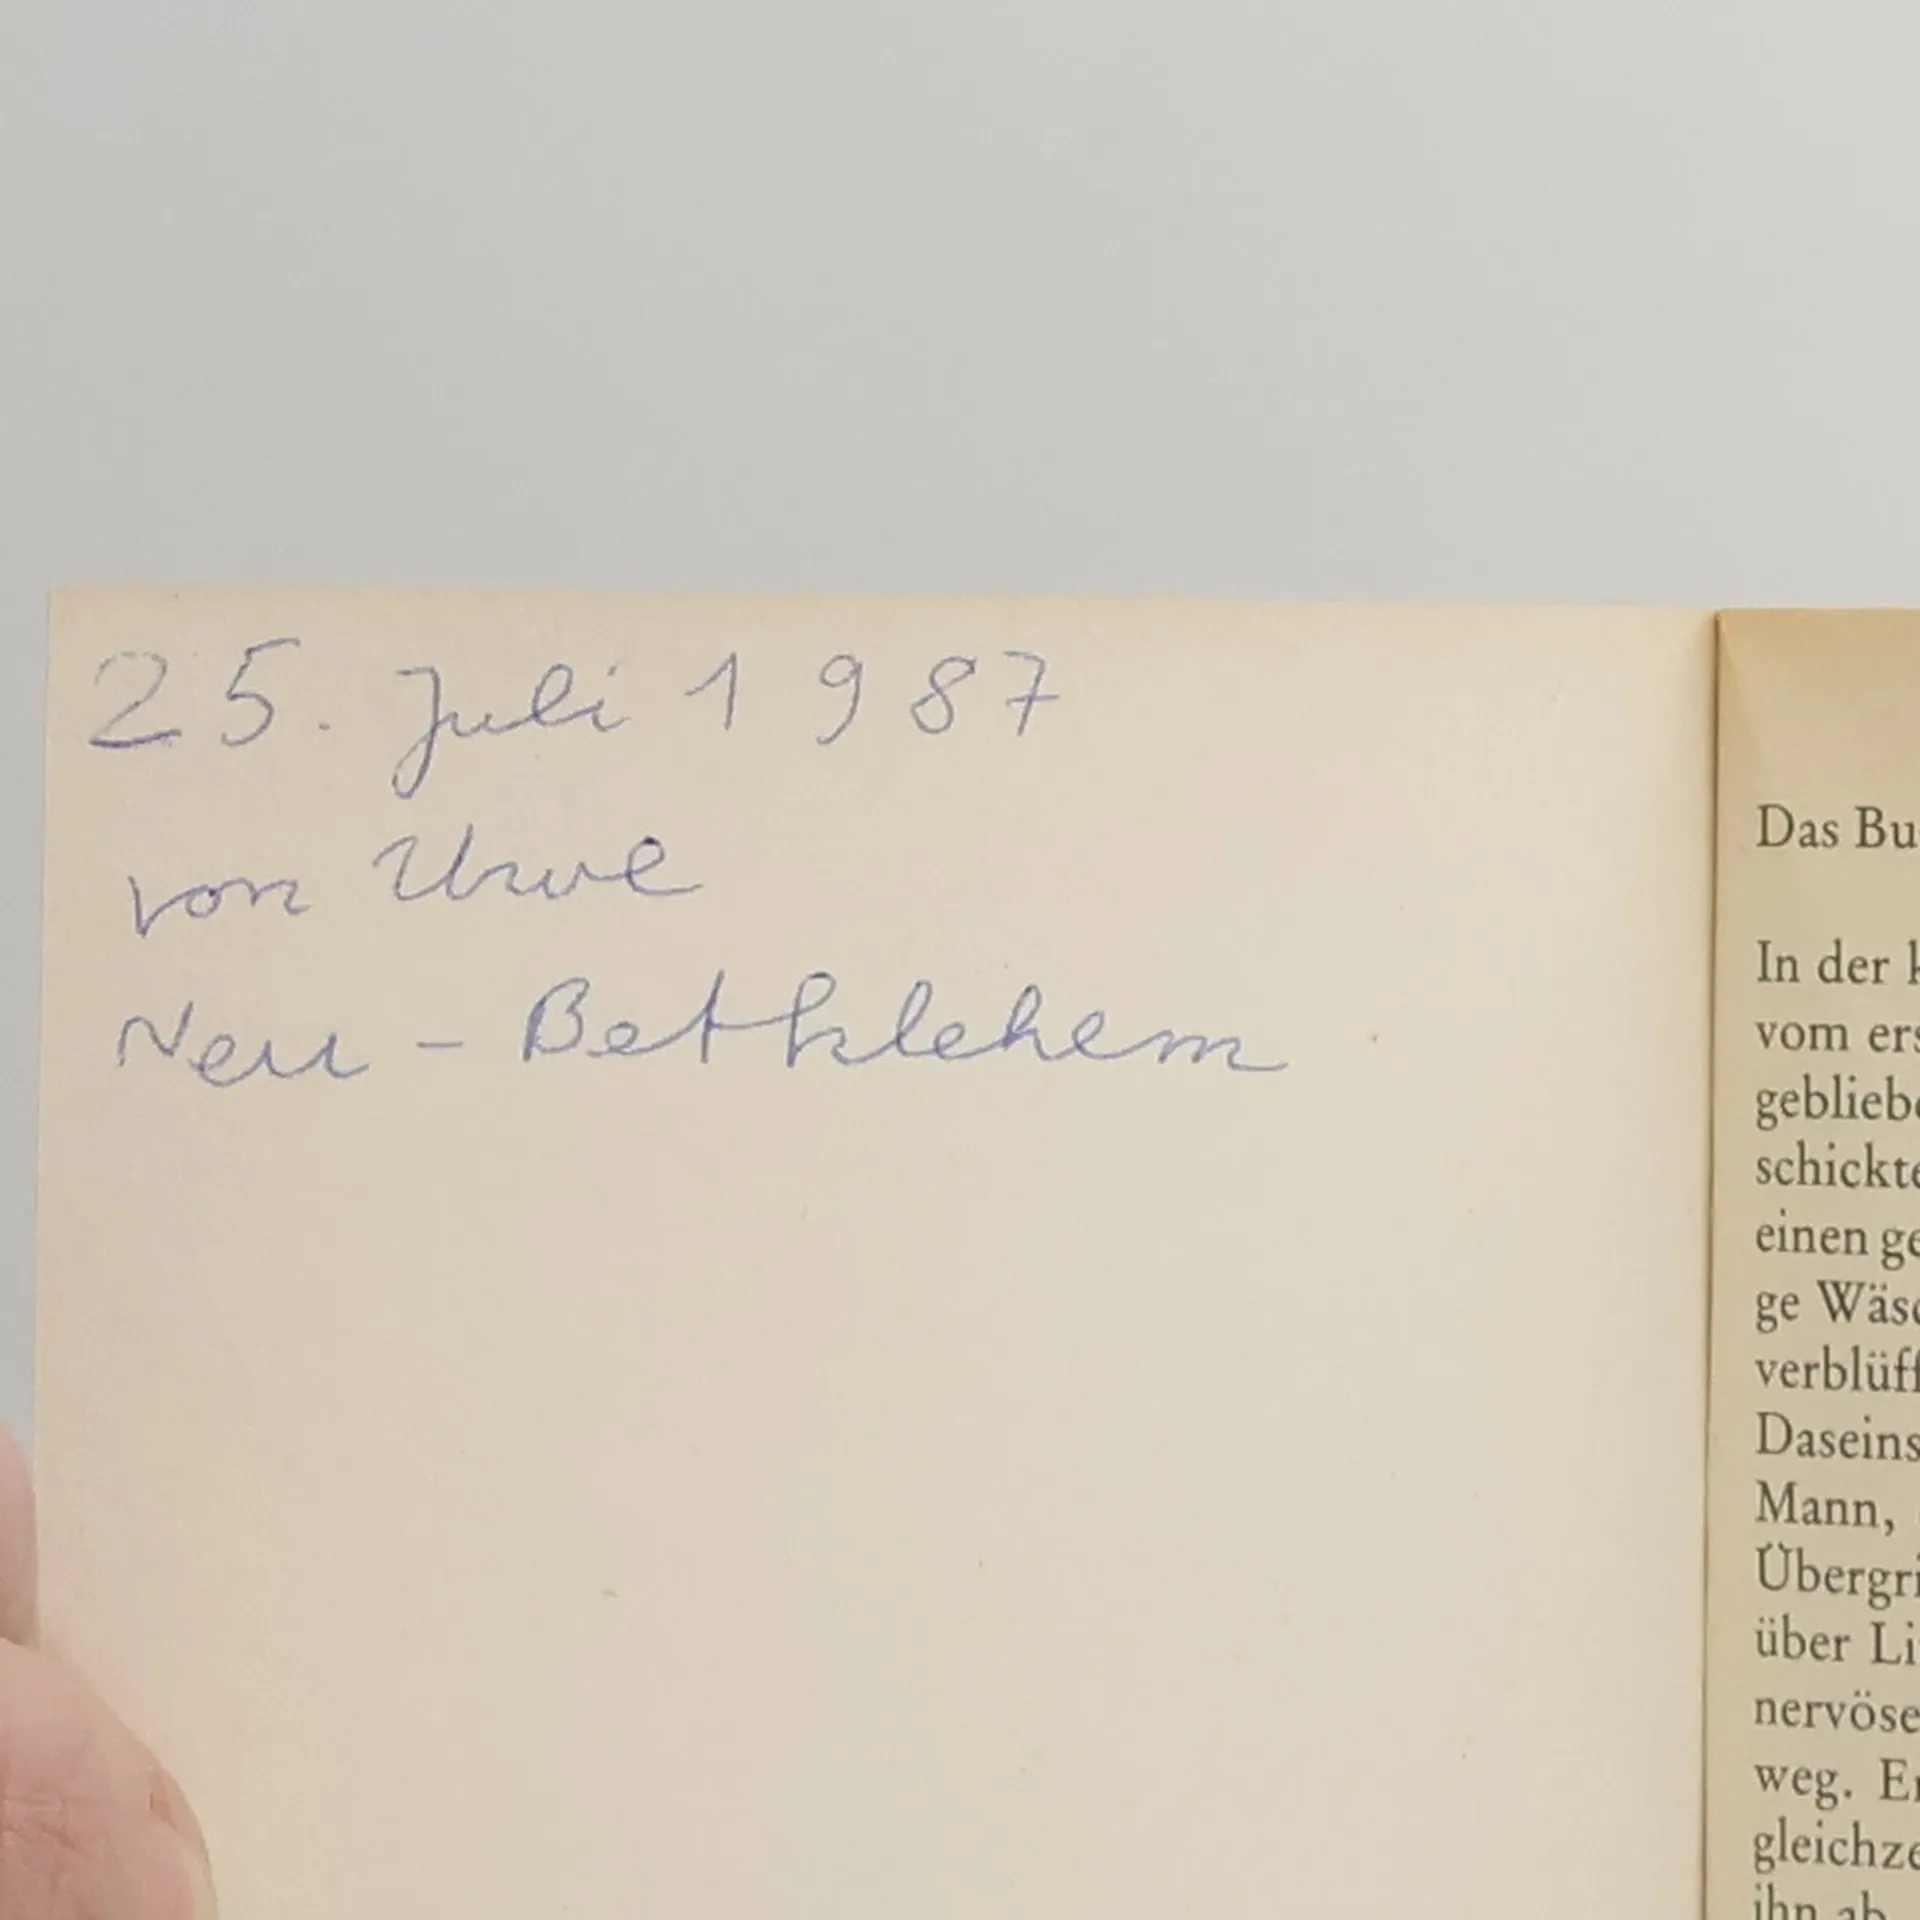 25. Juli 1987
von Uwe
Neu - Bethlehem
Das Bu
In der k
vom ers
gebliebe
schickte
einen ge
ge Wäsc
verblüff
Daseins
Mann,
Übergri
über Li
nervöse
weg. Er
gleichze
ihn ab